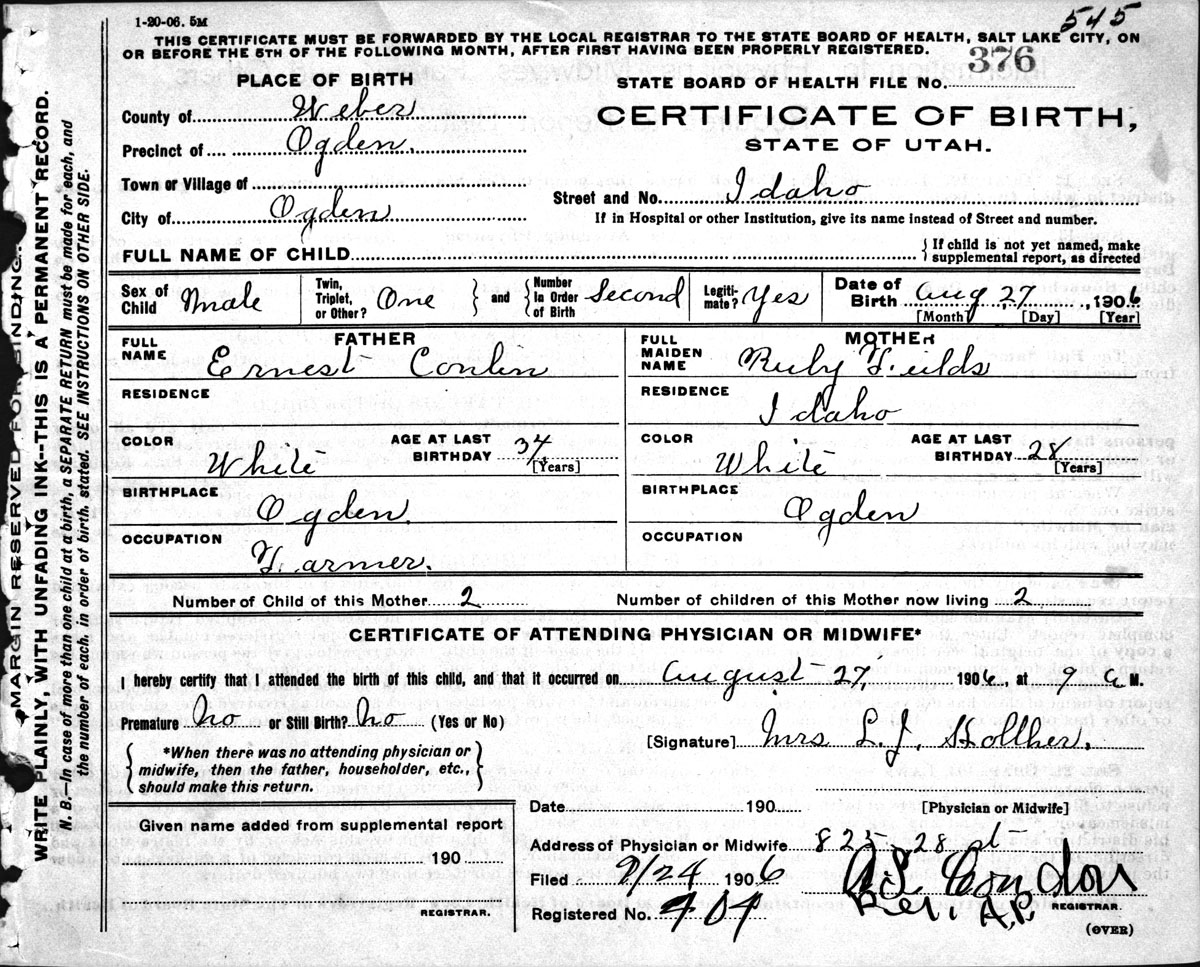 1-20-06. 5M
545
THIS CERTIFICATE MUST BE FORWARDED BY THE LOCAL REGISTRAR TO THE STATE BOARD OF HEALTH, SALT LAKE CITY, ON
OR BEFORE THE 5TH OF THE FOLLOWING MONTH, AFTER FIRST HAVING BEEN PROPERLY REGISTERED.
376
PLACE OF BIRTH
STATE BOARD OF HEALTH FILE No.
County of Weber
CERTIFICATE OF BIRTH,
Precinct of Ogden.
STATE OF UTAH.
Town or Village of
City of Ogden
Street and No. Idaho
If in Hospital or other Institution, give its name instead of Street and number.
FULL NAME OF CHILD
{ If child is not yet named, make
supplemental report, as directed
Sex of Child Male
Twin, Triplet, or Other? One } and { Number In Order of Birth Second
Legiti- mate? Yes
Date of Birth Aug 27, 1906
[Month] [Day] [Year]
FATHER
MOTHER
FULL NAME Ernest Conlin
FULL MAIDEN NAME Ruby Fields
RESIDENCE
RESIDENCE Idaho
COLOR White AGE AT LAST BIRTHDAY 34 [Years]
COLOR White AGE AT LAST BIRTHDAY 28 [Years]
BIRTHPLACE Ogden.
BIRTHPLACE Ogden
OCCUPATION Farmer.
OCCUPATION
Number of Child of this Mother 2 Number of children of this Mother now living 2
CERTIFICATE OF ATTENDING PHYSICIAN OR MIDWIFE*
I hereby certify that I attended the birth of this child, and that it occurred on August 27, 1906, at 9 a M.
Premature no or Still Birth? no (Yes or No)
{ *When there was no attending physician or
midwife, then the father, householder, etc.,
should make this return. }
[Signature] Mrs L. J. Hollher.
Given name added from supplemental report
190
REGISTRAR.
Date 190 [Physician or Midwife]
Address of Physician or Midwife 825-28 st
Filed 9/24 1906
REGISTRAR.
Registered No. 404
(OVER)
MARGIN RESERVED FOR BINDING.
WRITE PLAINLY, WITH UNFADING INK--THIS IS A PERMANENT RECORD.
N. B.—In case of more than one child at a birth, a SEPARATE RETURN must be made for each, and
the number of each, in order of birth, stated. SEE INSTRUCTIONS ON OTHER SIDE.